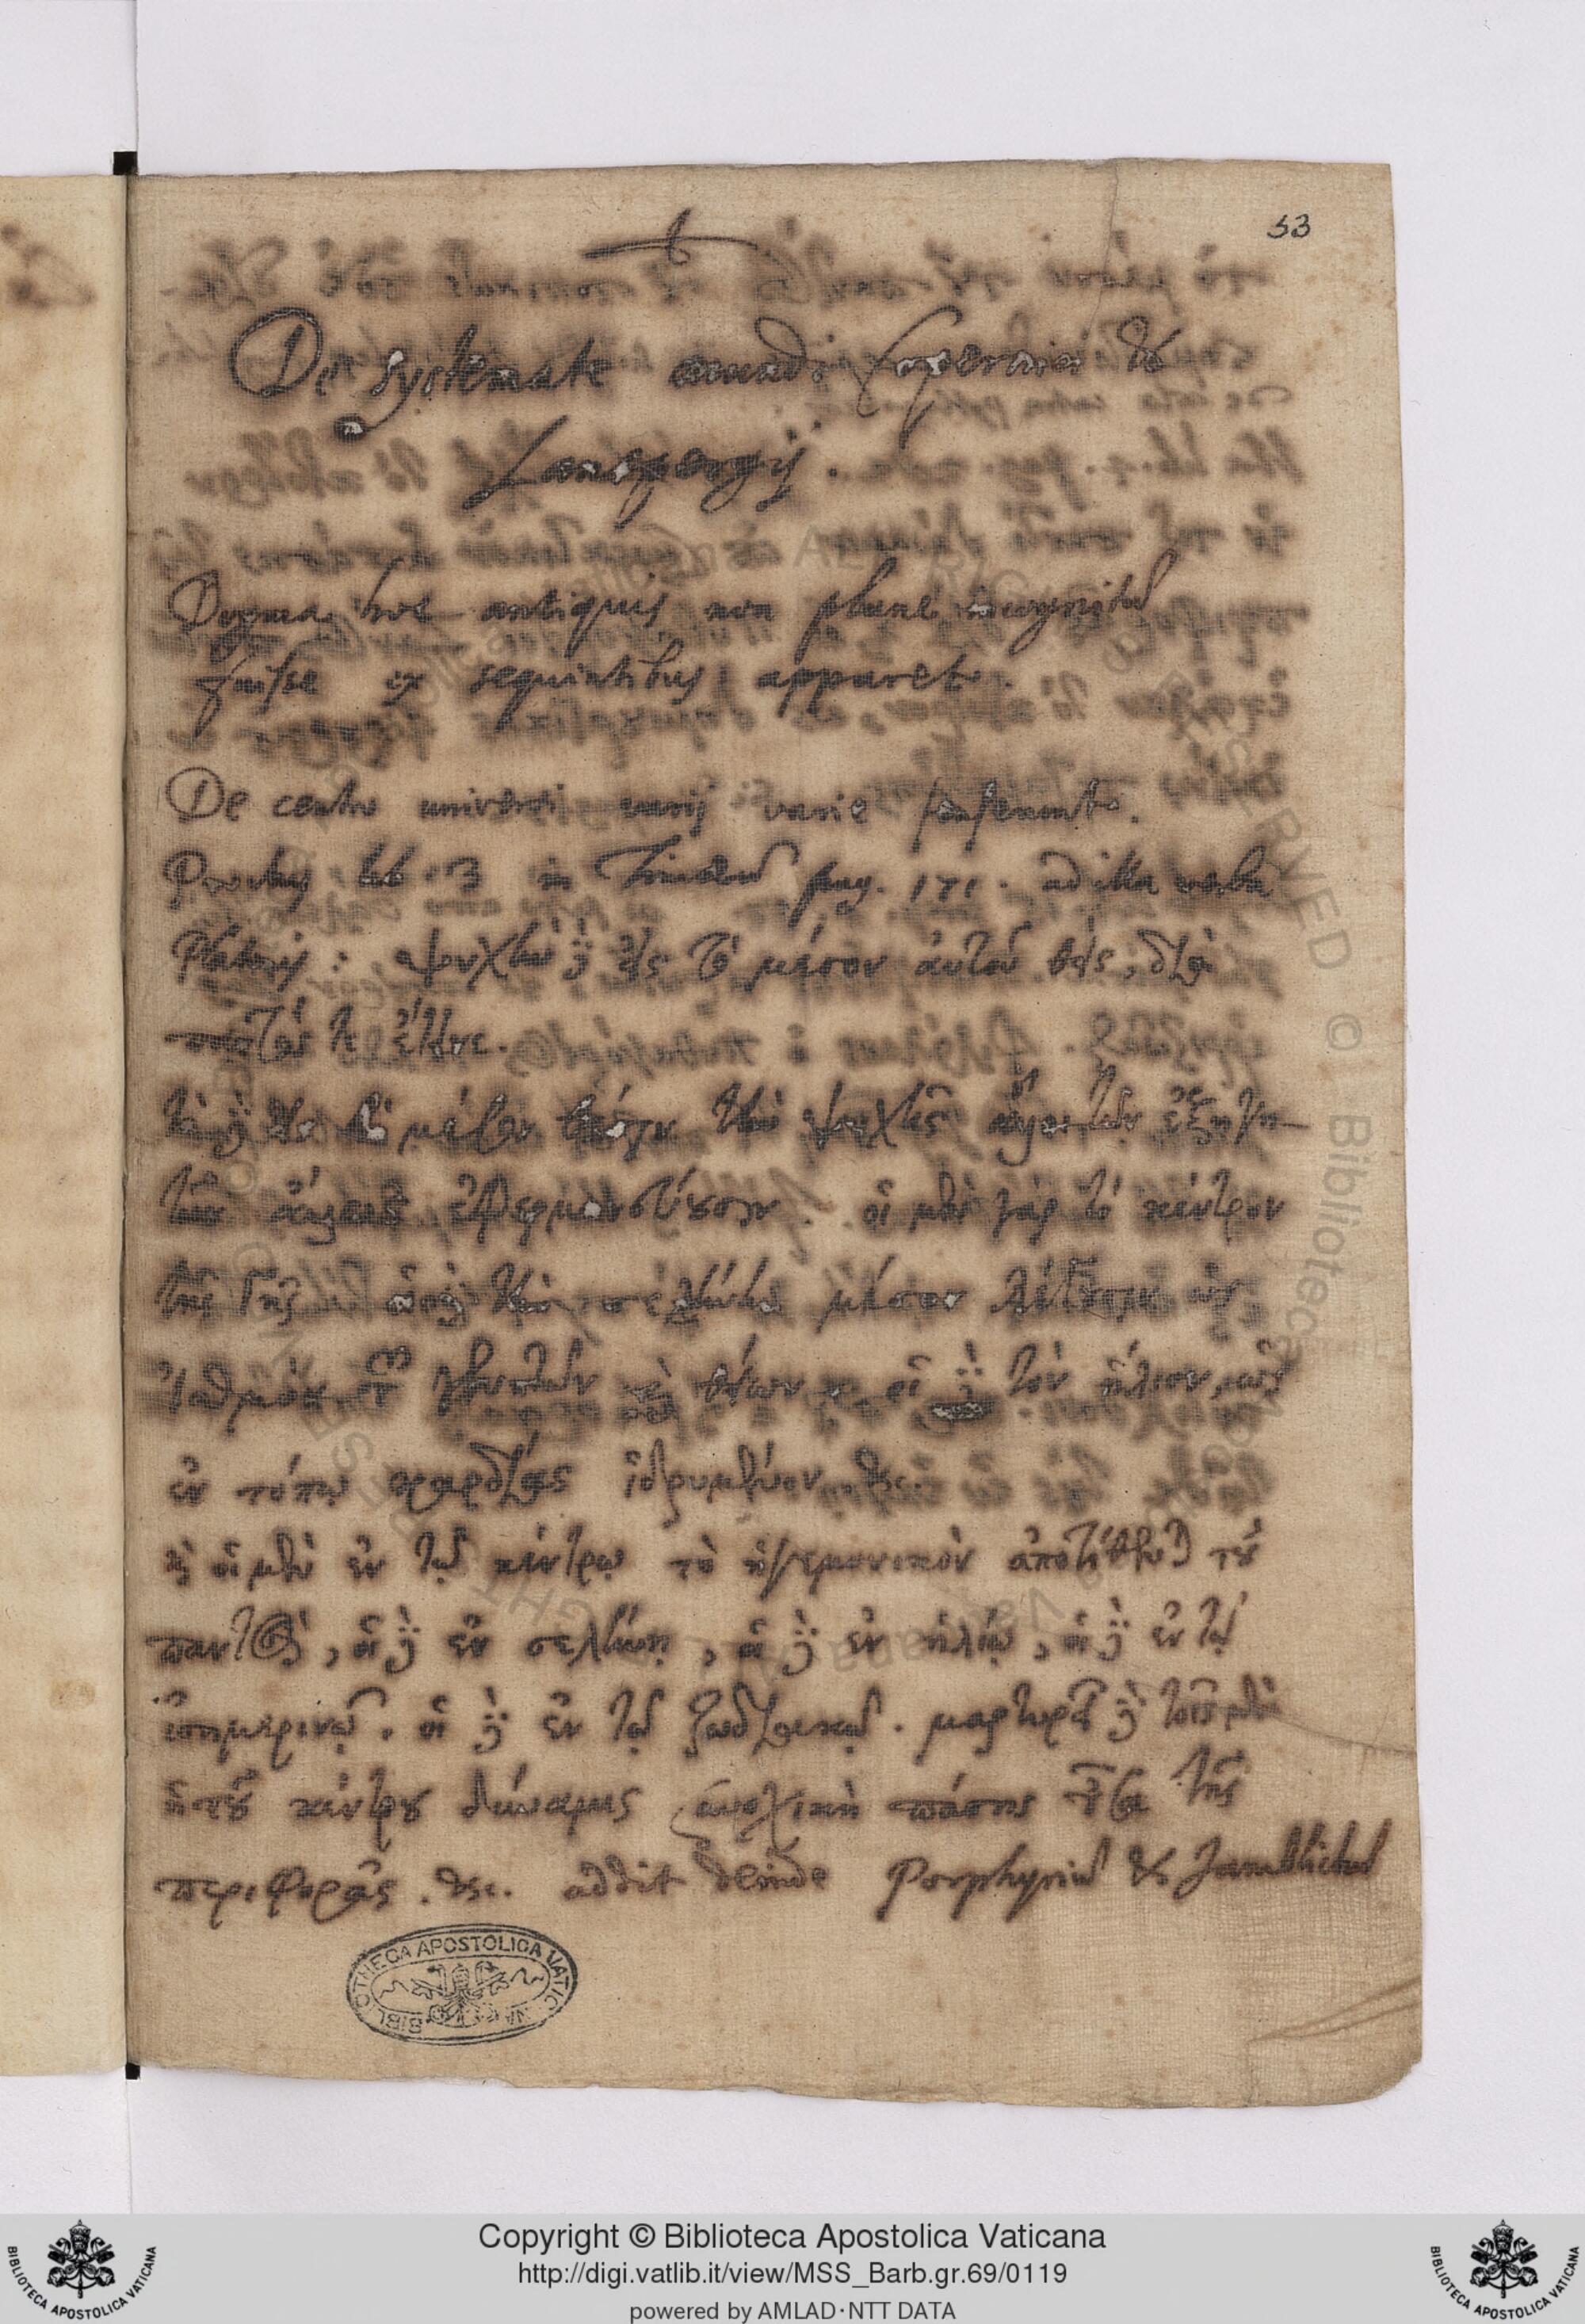 53
De systemate mundi Copernici &
Lanspergij.
Dogma hoc antiquis non plane incognitū
fuisse ex sequentibus apparet.
De centro universi varij varie senserunt.
Proclus lib. 3 in Timæū pag. 171. ad illa verba
Platonis: ψυχὴν δὲ εἰς τὸ μέσον αὐτοῦ θεὶς, διὰ
παντός τε ἔτεινε.
τὸ μέσον τὴν ψυχῆς ἐξηγη-
τῶν ἄλλως. οἱ μὲν γὰρ τὸ κέντρον
τῆς γῆς οἱ δὲ τὴν σελήνην μέσον ὡς
ἰσθμὸν θείων οἱ δὲ τὸν ἥλιον, ὡς
ἐν τόπῳ καρδίας ἱδρυμένον &c.
κὶ οἱ μὲν ἐν τῷ κέντρῳ τὸ ἡγεμονικὸν ἀποτίθενται τοῦ
παντὸς, οἱ δὲ ἐν σελήνῃ, οἱ δὲ ἐν ἡλίῳ, οἱ δὲ ἐν τῷ
ἰσημερινῷ. οἱ δὲ ἐν τῷ ζωδιακῷ. μαρτυρεῖ δὲ τοῖς μὲν
ἡ τοῦ κέντρου δύναμις συνοχικὴ πάσης οὖσα τῆς
περιφορᾶς. &c. addit deinde Porphyriū & Jamblichū
BIBLIOTHECA APOSTOLICA VATICANA
Copyright © Biblioteca Apostolica Vaticana
http://digi.vatlib.it/view/MSS_Barb.gr.69/0119
powered by AMLAD·NTT DATA
BIBLIOTECA APOSTOLICA VATICANA
BIBLIOTECA APOSTOLICA VATICANA